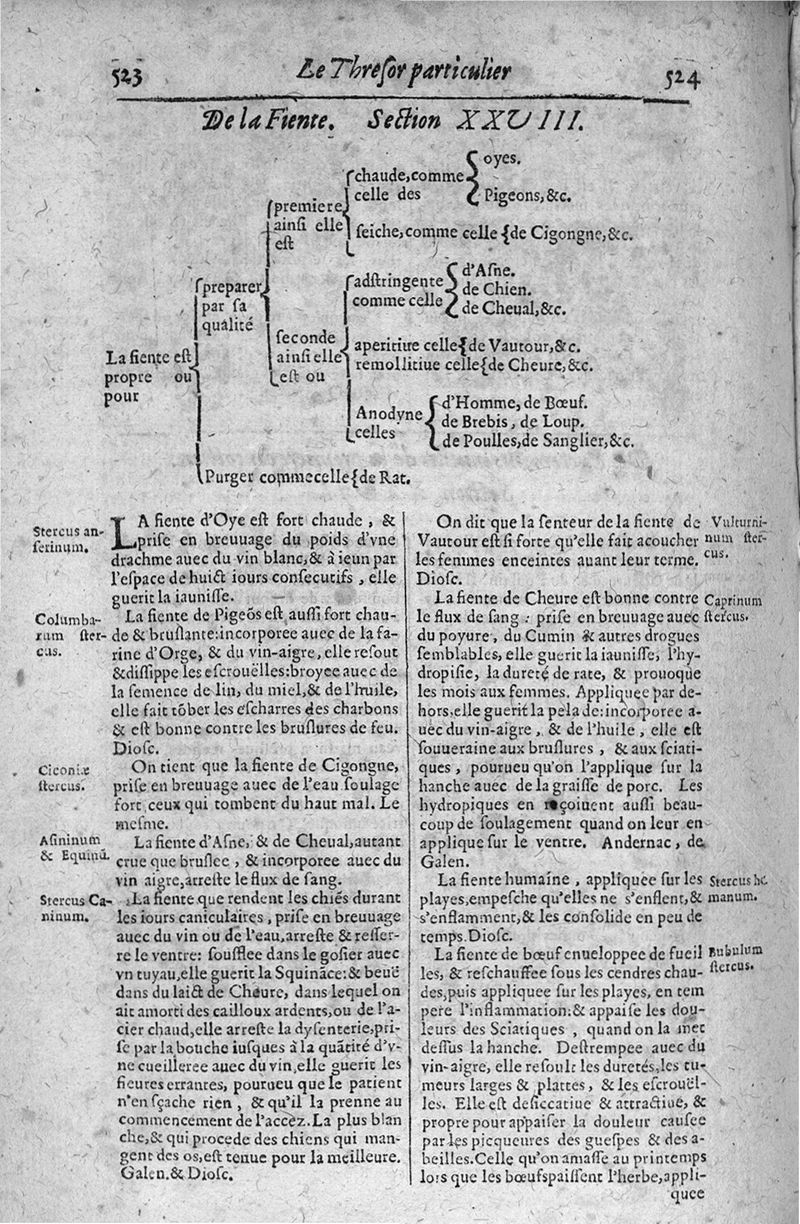 523 Le Threſor particulier 524
De la Fiente. Section XXVIII.
oyes.
ſchaude, comme
celle des Pigeons, &c.
premiere
ainſi elle ſeiche, comme celle {de Cigongne, &c.
eſt
d'Aſne.
preparer adſtringente de Chien.
par ſa comme celle de Cheual, &c.
qualité
ſeconde
La fiente eſt ainſi elle aperitiue celle {de Vautour, &c.
propre ou eſt ou remollitiue celle {de Cheure, &c.
pour
d'Homme, de Bœuf.
Anodyne de Brebis, de Loup.
celles de Poulles, de Sanglier, &c.
Purger comme celle {de Rat.
Stercus an-
ſerinum.
LA fiente d'Oye eſt fort chaude, &
priſe en breuuage du poids d'vne
drachme auec du vin blanc, & à ieun par
l'eſpace de huict iours conſecutifs, elle
guerit la iauniſſe.
Columba-
rum ſter-
cus.
La fiente de Pigeõs eſt auſſi fort chau-
de & bruſlante: incorporee auec de la fa-
rine d'Orge, & du vin-aigre, elle reſout
& diſſippe les eſcrouëlles: broyee auec de
la ſemence de lin, du miel, & de l'huile,
elle fait tõber les eſcharres des charbons
& eſt bonne contre les bruſlures de feu.
Dioſc.
Ciconiæ
ſtercus.
On tient que la fiente de Cigongne,
priſe en breuuage auec de l'eau ſoulage
fort ceux qui tombent du haut mal. Le
meſme.
Aſininum
& Equinũ.
La fiente d'Aſne, & de Cheual, autant
crue que bruſlee, & incorporee auec du
vin aigre, arreſte le flux de ſang.
Stercus Ca-
ninum.
La fiente que rendent les chiẽs durant
les iours caniculaires, priſe en breuuage
auec du vin ou de l'eau, arreſte & reſſer-
re le ventre: ſoufflee dans le goſier auec
vn tuyau, elle guerit la Squinãce: & beuë
dans du laict de Cheure, dans lequel on
ait amorti des cailloux ardents, ou de l'a-
cier chaud, elle arreſte la dyſenterie, pri-
ſe par la bouche iuſques à la quãtité d'v-
ne cueilleree auec du vin, elle guerit les
fieures errantes, pourueu que le patient
n'en ſçache rien, & qu'il la prenne au
commencement de l'accèz. La plus blan
che, & qui procede des chiens qui man-
gent des os, eſt tenue pour la meilleure.
Galen. & Dioſc.
On dit que la ſenteur de la fiente de
Vautour eſt ſi forte qu'elle fait acoucher
les femmes enceintes auant leur terme.
Dioſc.
Vulturni-
num ſter-
cus.
La fiente de Cheure eſt bonne contre
le flux de ſang: priſe en breuuage auec
du poyure, du Cumin & autres drogues
ſemblables, elle guerit la iauniſſe, l'hy-
dropiſie, la dureté de rate, & prouoque
les mois aux femmes. Appliquee par de-
hors, elle guerit la pelade: incorporee a-
uec du vin-aigre, & de l'huile, elle eſt
ſouueraine aux bruſlures, & aux ſciati-
ques, pourueu qu'on l'applique ſur la
hanche auec de la graiſſe de porc. Les
hydropiques en reçoiuent auſſi beau-
coup de ſoulagement quand on leur en
applique ſur le ventre. Andernac, de
Galen.
Caprinum
ſtercus.
La fiente humaine, appliquee ſur les
playes, empeſche qu'elles ne s'enflent, &
s'enflamment, & les conſolide en peu de
temps. Dioſc.
Stercus hu
manum.
La fiente de bœuf enueloppee de fueil
les, & reſchauffee ſous les cendres chau-
des, puis appliquee ſur les playes, en tem
pere l'inflammation: & appaiſe les dou-
leurs des Sciatiques, quand on la met
deſſus la hanche. Deſtrempee auec du
vin-aigre, elle reſoult les duretés, les tu-
meurs larges & plattes, & les eſcrouël-
les. Elle eſt deſiccatiue & attractiue, &
propre pour appaiſer la douleur cauſee
par les picqueures des gueſpes & des a-
beilles. Celle qu'on amaſſe au printemps
lors que les bœufs paiſſent l'herbe, appli-
quee
Bubulum
ſtercus.